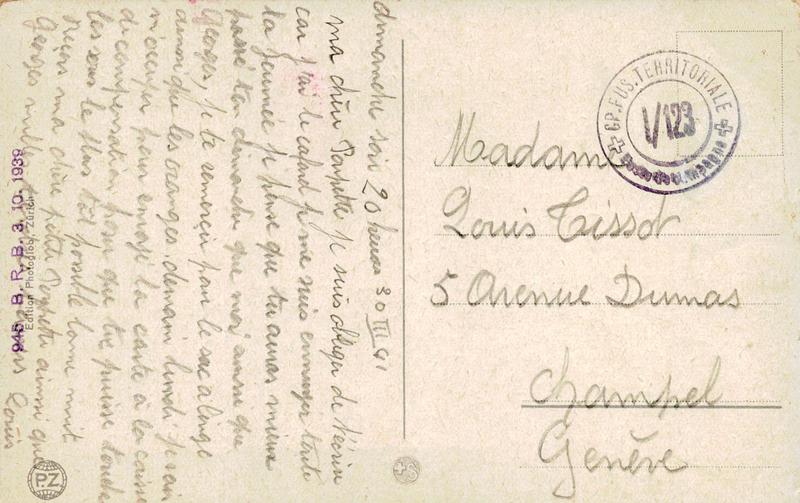 dimanche soir 20 heures 30 III 41
ma chère Poupette je suis obligé de t'écrir
car j'ai le cafard je me suis ennuyer toute
la journée je pense que tu auras mieux
passé ton dimanche que moi ainsi que
Georges, je te remerçi pour le sac a linge
ainsi que les oranges demain lundi je
m'occupe pour envoyé la carte à la caisse
de compensation pour que tu puisse toucher
les sous le plus tôt possible bonne nuit
Reçois ma chère petite ainsi que
Georges mille
Louis
Madame
Louis Tissot
5 Avenue Dumas
Champel
Genève
GP. FUS. TERRITORIALE
I/123
945 B. R. B. 3. 10. 1939
Edition Photoglob, Zürich
PZ